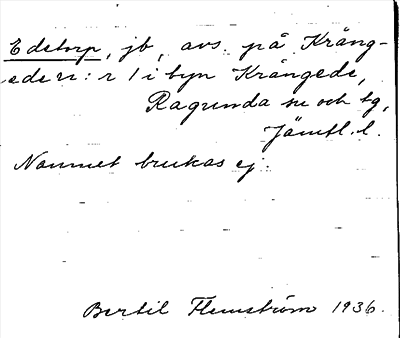 Edstorp, jb, avs. på Krång-
ede n:r 1 i byn Krångede,
Ragunda sn och tg,
Jämtl. l.
Namnet brukas ej.
Bertil Flemström 1936.